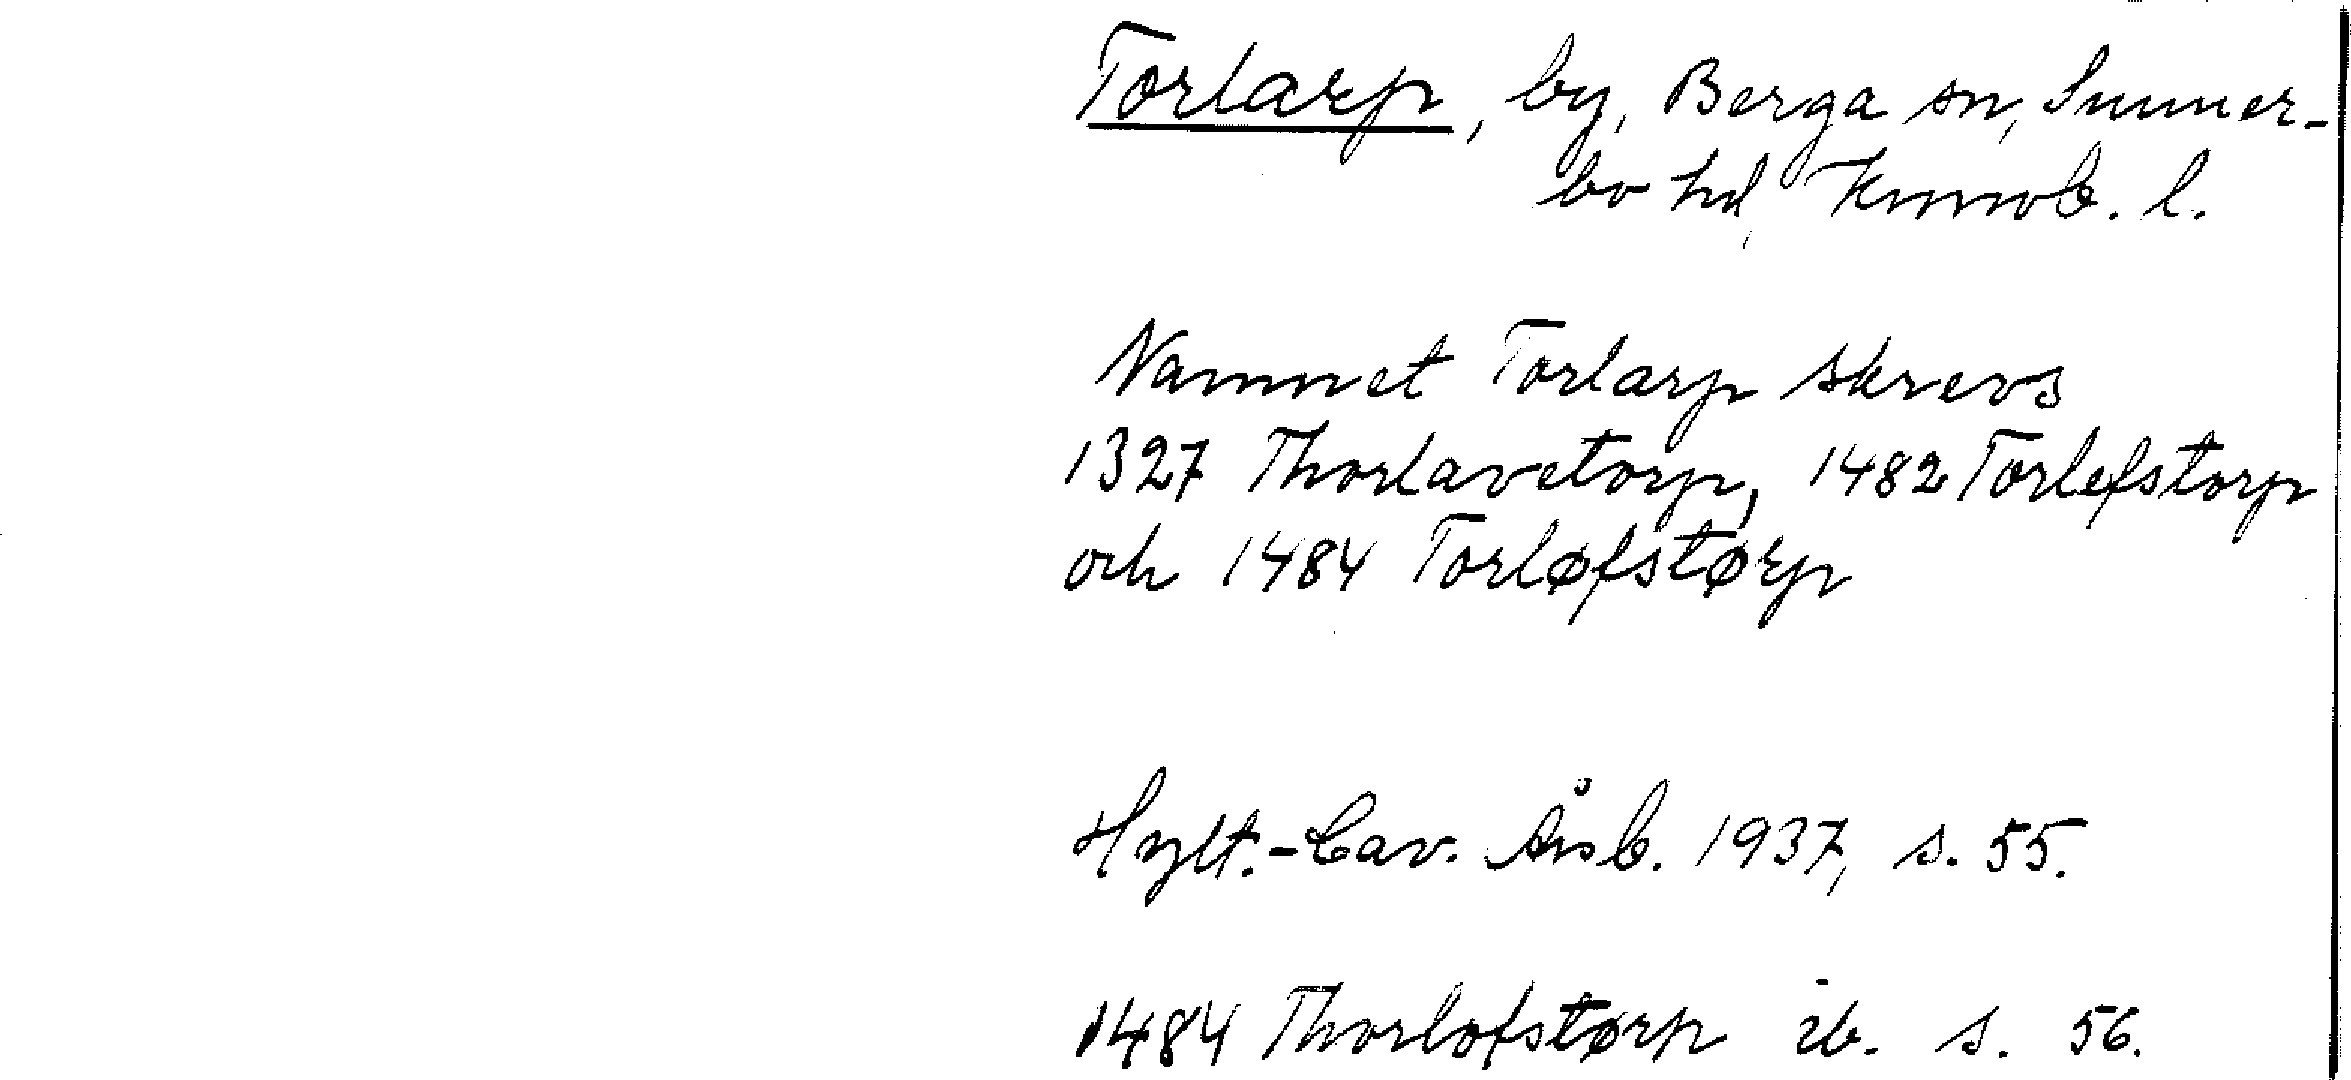 Torlarp, by, Berga sn, Sunner-
bo hd, Kronob. l.
Namnet Torlarp skrevs
1327 Thorlavetorp, 1482 Torlefstorp
och 1484 Torløfstørp
Hylt.-Cav. Årsb. 1937, s. 55.
1484 Thorlofstørp ib. s. 56.